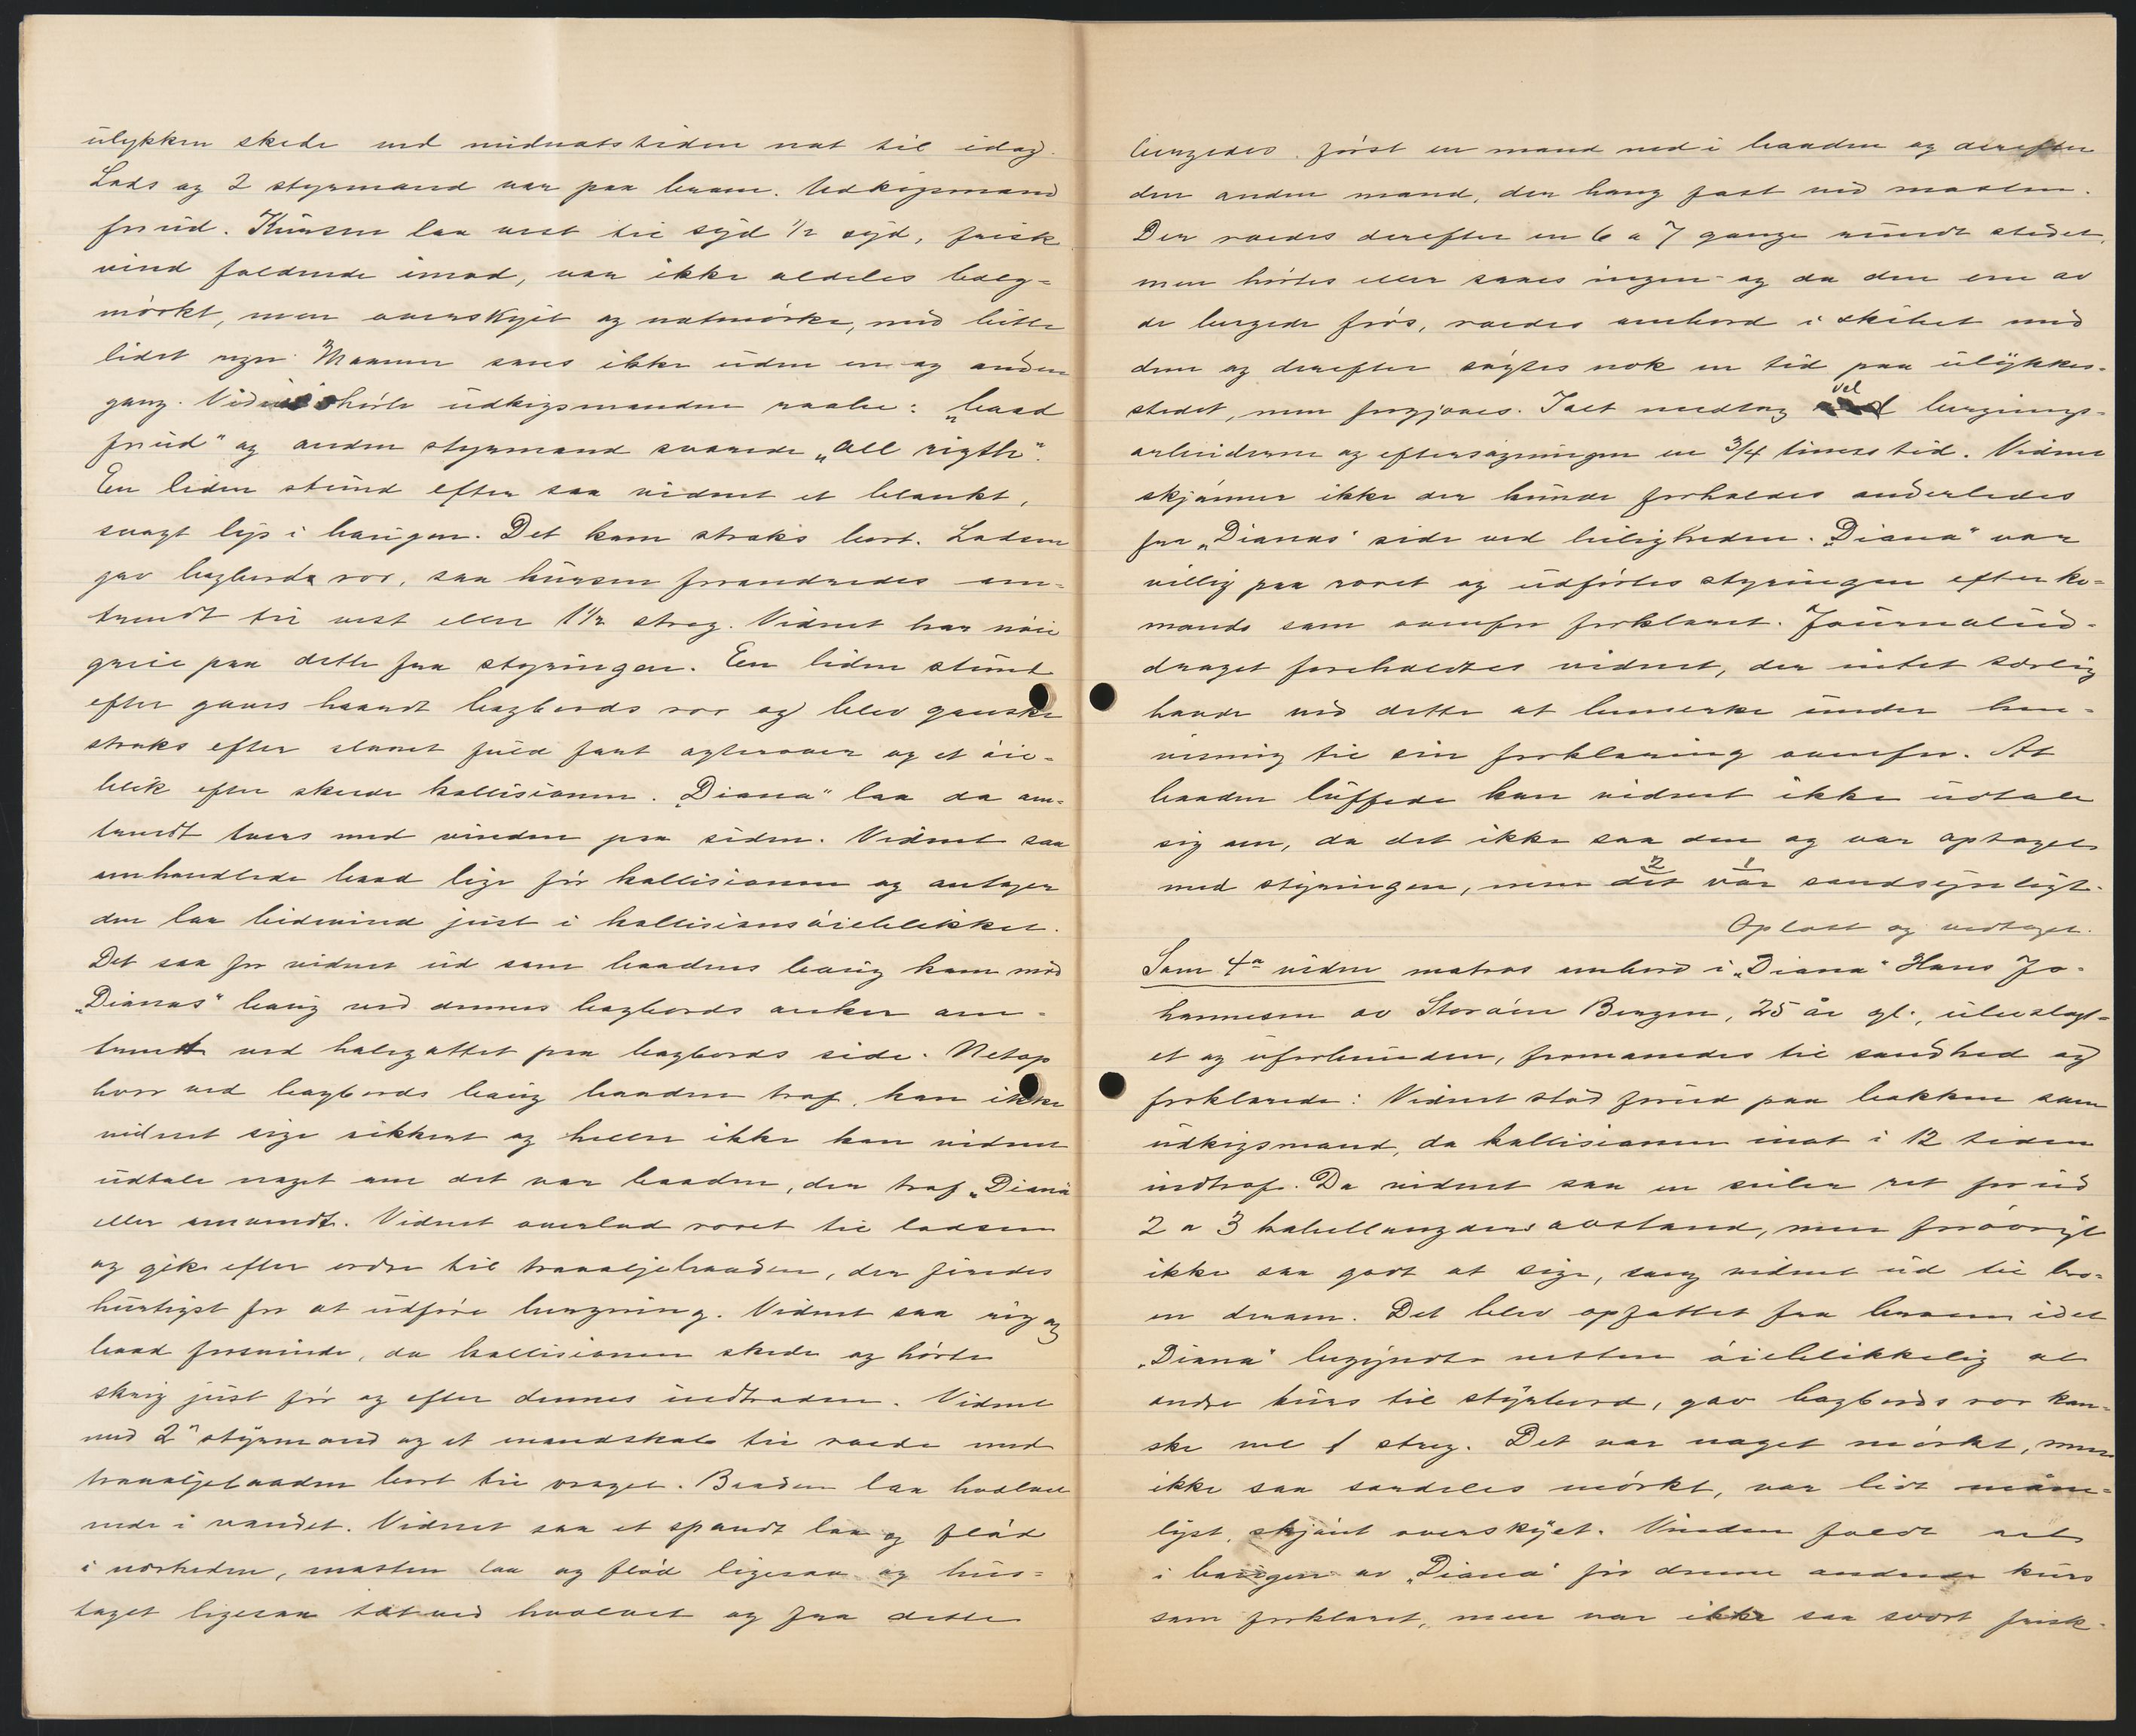 ulykken skede ved midnatstiden nat til idag.
Lods og 2 styrmand var paa broen. Udkigsmand
forud. Kursen laa vest til syd 1/2 syd, frisk
vind faldende imod, var ikke aldeles bælg-
mørkt, men overskyet og natmørke, med bitte
lidet regn. Maanen saaes ikke uden en og anden
gang. Vidnet hørte udkigsmanden raabe: „baad
forud" og anden styrmand svarede „all rigth".
En liden stund efter saa vidnet et blankt,
svagt lys i baugen. Det kom straks bort. Lodsen
gav bagbords ror, saa kursen forandredes om-
trendt til vest eller 1 1/2 streg. Vidnet har nøie
greie paa dette fra styringen. En liden stund
efter gaves haardt bagbords ror og blev ganske
straks efter slaaet fuld fart agterover og et øie-
blik efter skeede kollisionen. „Diana" laa da om-
trendt tvers med vinden paa siden. Vidnet saa
omhandlede baad lige før kollisionen og antager
den laa bidevind just i kollisionsøieblikket.
Det saa for vidnet ud som baadens baug kom mod
„Dianas" baug ved dennes bagbords anker om-
trendt ved halegattet paa bagbords side. Netop
hvor ved bagbords baug baaden traf, kan ikke
vidnet sige sikkert og heller ikke kan vidnet
udtale noget om det var baaden, der traf „Diana"
eller omvendt. Vidnet overlod roret til lodsen
og gik efter ordre til travaljebaaden, der firedes
hurtigst for at udføre bergning. Vidnet saa rig og
baad forsvinde, da kollisionen skede og hørte
skrig just før og efter dennes indtræden. Vidnet
med 2n styrmand og et mandskab til roede med
travaljebaaden bort til vraget. Baaden laa hvælvet
nede i vandet. Vidnet saa et spandt laa og flød
i nærheden, masten laa og flød ligesaa og hus-
taget ligesaa tæt ved hvælvet og fra dette
bergedes først en mand ned i baaden og derefter
den anden mand, der hang fast ved masten.
Der roedes derefter en 6 a 7 gange rundt stedet,
men hørtes eller saaes ingen og da den ene av
de bergede frøs, roedes ombord i skibet med
dem og derefter søgtes nok en tid paa ulykkes-
stedet, men forgjæves. Ialt medtog vel bergnings-
arbeiderne og eftersøgningen en 3/4 timers tid. Vidnet
skjønner ikke der kunde forholdes anderledes
fra „Dianas" side ved leiligheden. „Diana" var
villig paa roret og udførtes styringen efter ko-
mando som ovenfor forklaret. Journalud-
draget foreholdtes vidnet, der intet særlig
havde ved dette at bemerke under hen-
visning til sin forklaring ovenfor. At
baaden luffede kan vidnet ikke udtale
sig om, da det ikke saa den og var optaget
2 1
med styringen, men det var sandsynligt.
Oplæst og vedtaget.
Som 4de vidne matros ombord i „Diana" Hans Jo-
hannesen av Storøen Bergen, 25 år gl., ubeslægt-
et og uforbunden, formanedes til sandhed og
forklarede: Vidnet stod forud paa bakken som
udkigsmand, da kollisionen inat i 12 tiden
indtraf. Da vidnet saa en seiler ret forud
2 a 3 kabellængders avstand, men forøvrigt
ikke saa godt at sige, sang vidnet ud til bro-
en derom. Det blev opfattet fra broen idet
„Diana" begyndte næsten øieblikkelig at
ændre kurs til styrbord, gav bagbords ror kan-
ske vel 1 streg. Det var noget mørkt, men
ikke saa særdeles mørkt, var lidt måne-
lyst, skjønt overskyet. Vinden faldt ret
i baugen av „Diana" før denne ændrede kurs
som forklaret, men var ikke saa svært frisk.